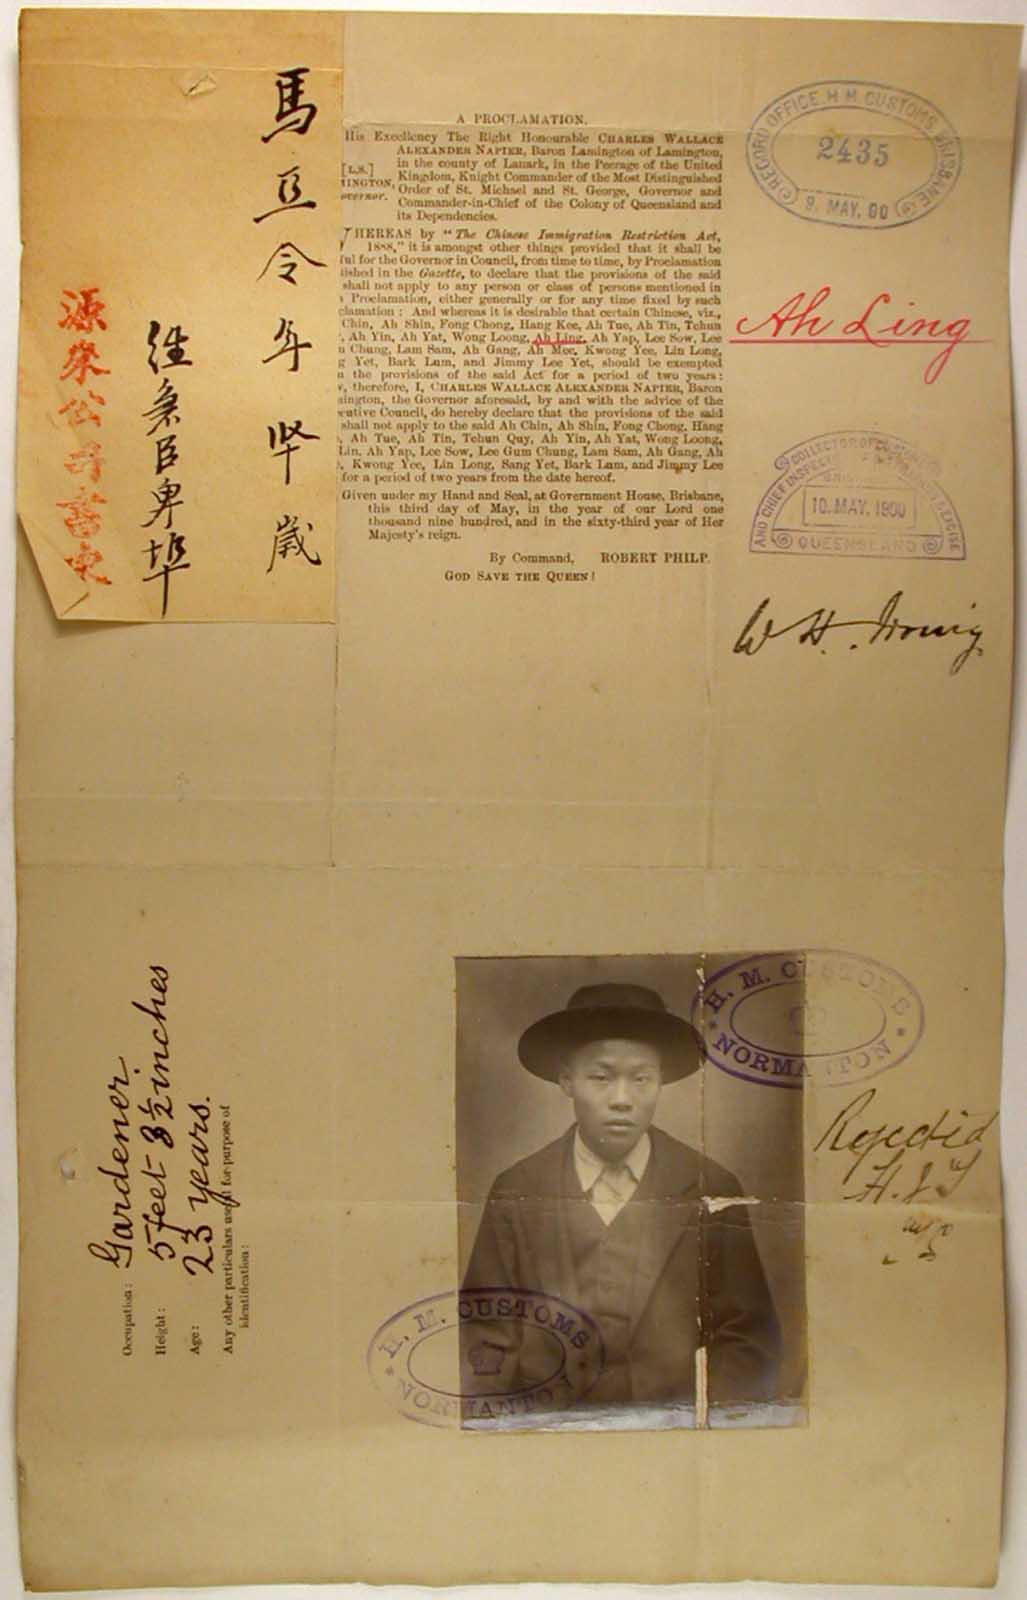 馬豆令年
歲
源來公司書柬
A PROCLAMATION.
His Excellency The Right Honourable CHARLES WALLACE
ALEXANDER NAPIER, Baron Lamington of Lamington,
[L.S.] in the county of Lanark, in the Peerage of the United
MINGTON, Kingdom, Knight Commander of the Most Distinguished
overnor. Order of St. Michael and St. George, Governor and
Commander-in-Chief of the Colony of Queensland and
its Dependencies.
HEREAS by "The Chinese Immigration Restriction Act,
1888," it is amongst other things provided that it shall be
ful for the Governor in Council, from time to time, by Proclamation
lished in the Gazette, to declare that the provisions of the said
shall not apply to any person or class of persons mentioned in
Proclamation, either generally or for any time fixed by such
clamation: And whereas it is desirable that certain Chinese, viz.,
Chin, Ah Shin, Fong Chong, Hang Kee, Ah Tue, Ah Tin, Tchun
, Ah Yin, Ah Yat, Wong Loong, Ah Ling, Ah Yap, Lee Sow, Lee
Chung, Lam Sam, Ah Gang, Ah Mee, Kwong Yee, Lin Long,
g Yet, Bark Lum, and Jimmy Lee Yet, should be exempted
the provisions of the said Act for a period of two years:
, therefore, I, CHARLES WALLACE ALEXANDER NAPIER, Baron
ington, the Governor aforesaid, by and with the advice of the
cutive Council, do hereby declare that the provisions of the said
shall not apply to the said Ah Chin, Ah Shin, Fong Chong, Hang
, Ah Tue, Ah Tin, Tchun Quy, Ah Yin, Ah Yat, Wong Loong,
Lin, Ah Yap, Lee Sow, Lee Gum Chung, Lam Sam, Ah Gang, Ah
, Kwong Yee, Lin Long, Sang Yet, Bark Lum, and Jimmy Lee
for a period of two years from the date hereof.
Given under my Hand and Seal, at Government House, Brisbane,
this third day of May, in the year of our Lord one
thousand nine hundred, and in the sixty-third year of Her
Majesty's reign.
By Command, ROBERT PHILP.
GOD SAVE THE QUEEN!
RECORD OFFICE. H.M. CUSTOMS, BRISBANE
2435
9. MAY. 00
Ah Ling
COLLECTOR OF CUSTOMS
AND CHIEF INSPECTOR EXCISE
10. MAY. 1900
QUEENSLAND
W H. Irving
Occupation: Gardener
Height: 5 feet 3½ inches
Age: 23 years.
Any other particulars useful for purpose of
identification:
H. M. CUSTOMS
NORMANTON
Rejected
H. M. CUSTOMS
NORMANTON